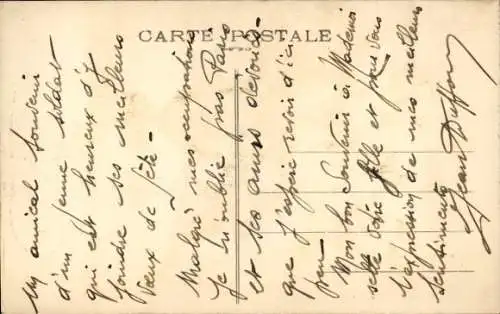 CARTE POSTALE
Un amical souvenir
d'un jeune soldat
qui est heureux d'y
joindre ses meilleurs
vœux de fête -
Malgré mes occupations
je n'oublie pas Paris
et ses amies dévouées
que j'espère revoir d'ici
peu
Mon bon souvenir à Mademoi
selle votre fille et pour vous
l'expression de mes meilleurs
sentiments
Jean